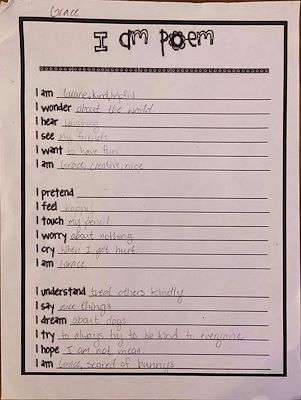 Grace
I am poem
I am Grace, kind,
I wonder about the world
I hear laughing
I see My friends
I want to have fun
I am Grace, creative, nice
I pretend
I feel happy
I touch my pencil
I worry about nothing.
I cry when I get hurt.
I am Grace
I understand treat others kindly
I say nice things
I dream about dogs
I try to always try to be kind to everyone
I hope I am not mean.
I am Grace, scared of bunnys